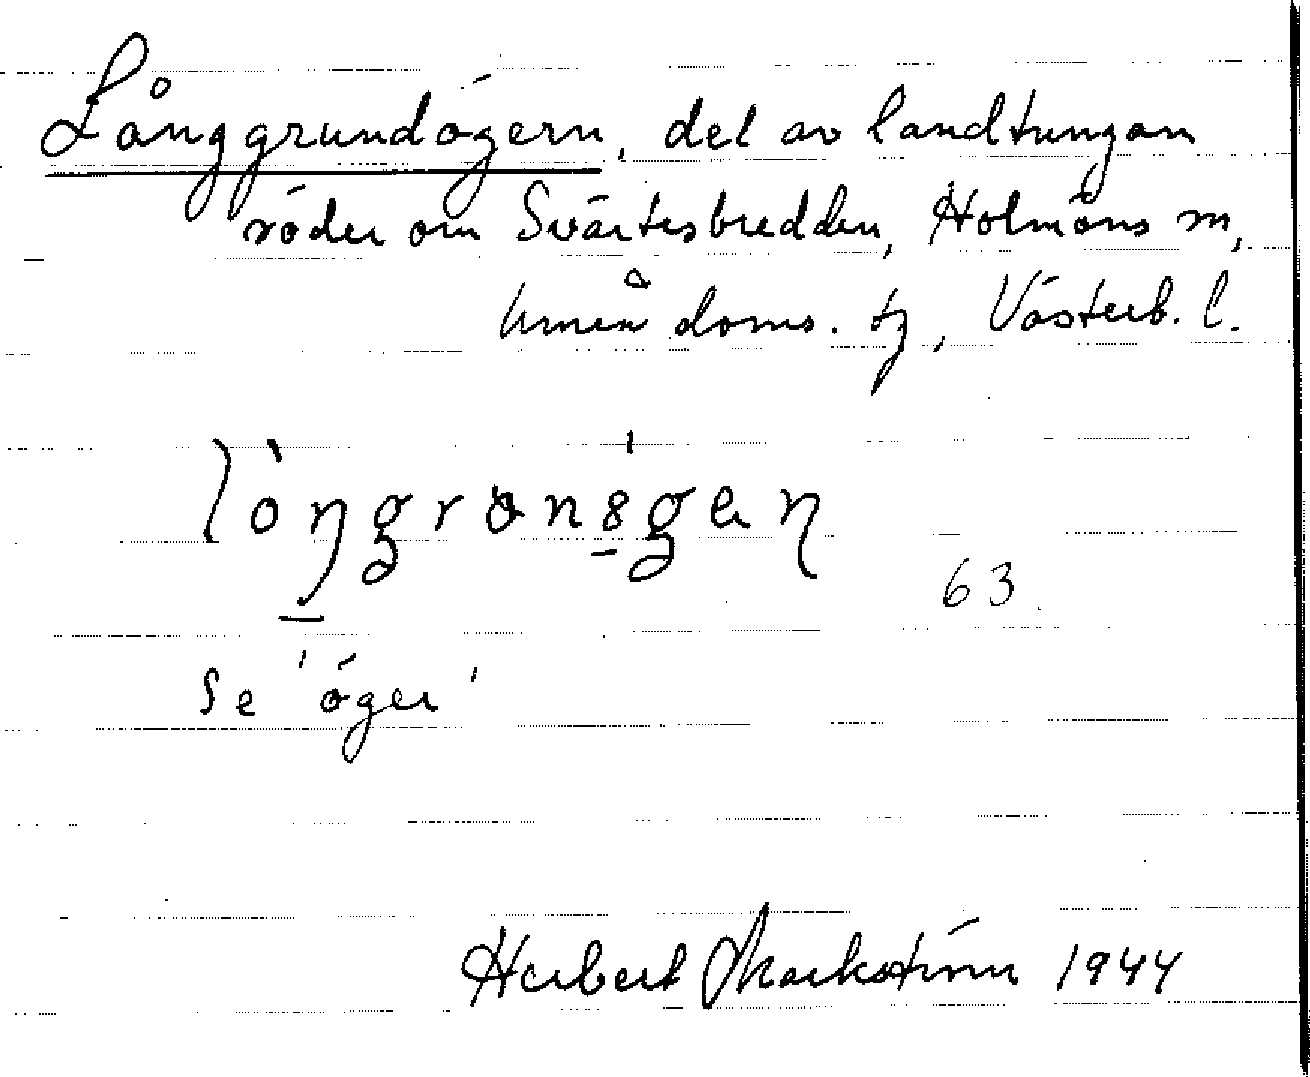 Långgrundögern, del av landtungan
söder om Svärtesbredden, Holmöns sn,
Umeå doms. tg, Västerb. l.
63
Se 'öger'
Herbert Markström 1944